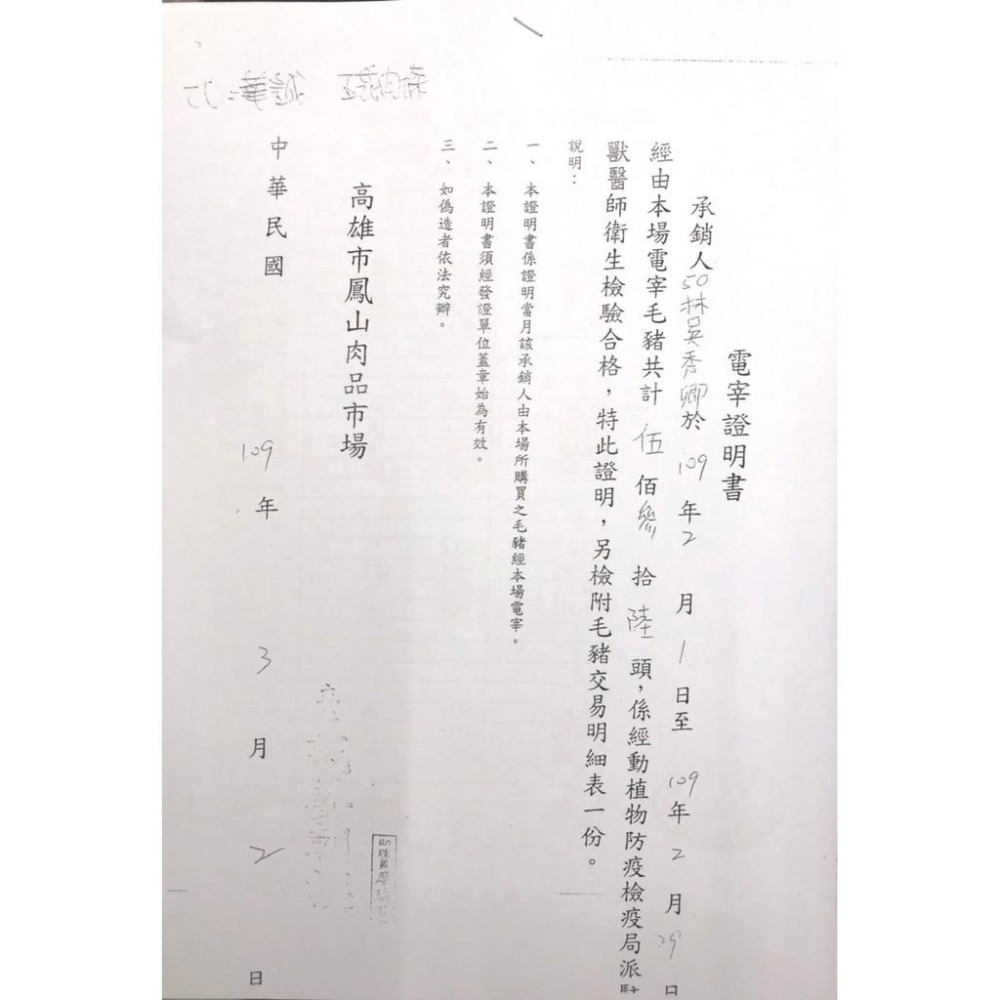 電宰證明書
承銷人50林吳秀卿於109年2月1日至109年2月29日
經由本場電宰毛豬共計伍佰參拾陸頭，係經動植物防疫檢疫局派駐
獸醫師衛生檢驗合格，特此證明，另檢附毛豬交易明細表一份。
說明：
一、本證明書係證明當月該承銷人由本場所購買之毛豬經本場電宰。
二、本證明書須經發證單位蓋章始為有效。
三、如偽造者依法究辦。
高雄市鳳山肉品市場
中華民國109年3月2日